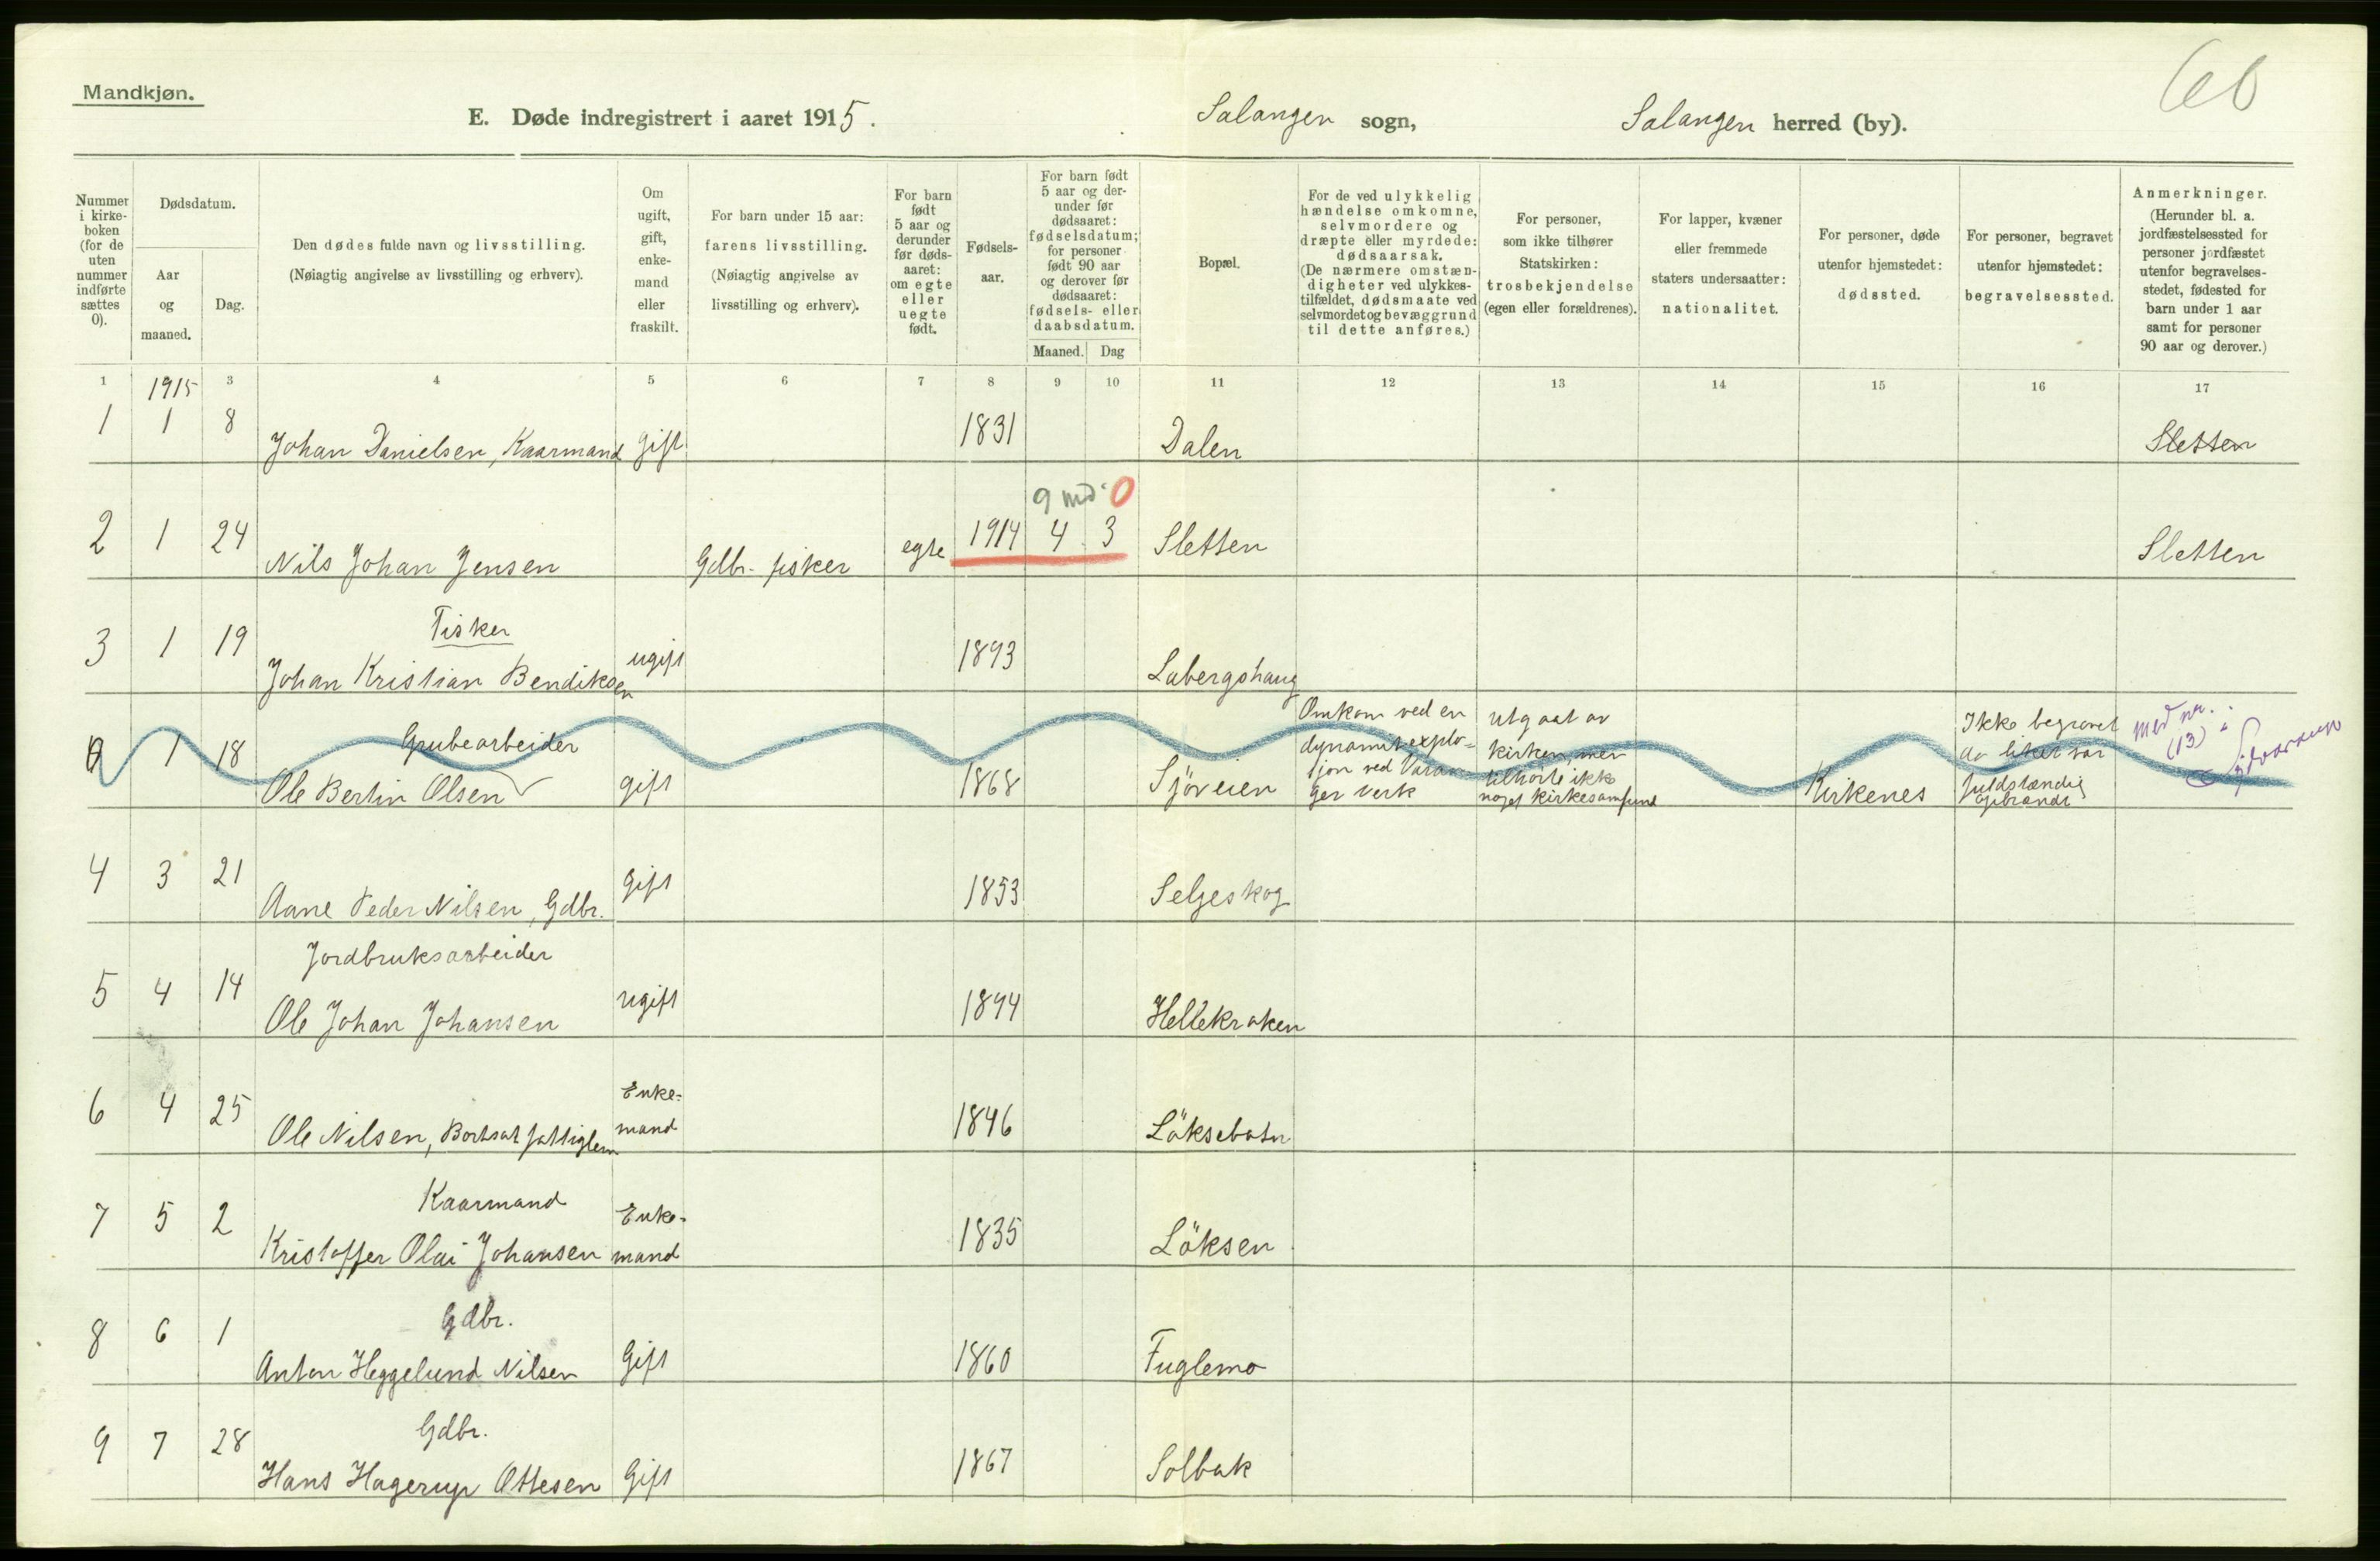 Mandkjøn.
60
E. Døde indregistrert i aaret 1915.
Salangen sogn,
Salangen herred (by).
Nummer i kirke-boken (for de uten nummer indførte sættes 0).
Dødsdatum.
Aar og maaned.
Dag.
Den dødes fulde navn og livsstilling.
(Nøiagtig angivelse av livsstilling og erhverv).
Om ugift, gift, enke-mand eller fraskilt.
For barn under 15 aar: farens livsstilling.
(Nøiagtig angivelse av livsstilling og erhverv).
For barn født 5 aar og derunder før døds-aaret: om egte eller uegte født.
Fødsels-aar.
For barn født 5 aar og der-under før dødsaaret: fødselsdatum; for personer født 90 aar og derover før dødsaaret: fødsels- eller daabsdatum.
Maaned. Dag
Bopæl.
For de ved ulykkelig hændelse omkomne, selvmordere og dræpte eller myrdede: dødsaarsak.
(De nærmere omstæn-digheter ved ulykkes-tilfældet, dødsmaate ved selvmordet og bevæggrund til dette anføres.)
For personer, som ikke tilhører Statskirken: trosbekjendelse (egen eller forældrenes).
For lapper, kvæner eller fremmede staters undersaatter: nationalitet.
For personer, døde utenfor hjemstedet: dødssted.
For personer, begravet utenfor hjemstedet: begravelsessted.
Anmerkninger.
(Herunder bl. a. jordfæstelsessted for personer jordfæstet utenfor begravelses-stedet, fødested for barn under 1 aar samt for personer 90 aar og derover.)
1 1915 3 4 5 6 7 8 9 10 11 12 13 14 15 16 17
1 1 8 Johan Danielsen, Kaarmand gift 1831 Dalen Sletten
9 md. 0
2 1 24 Nils Johan Jensen Gdbr. fisker egte 1914 4 3 Sletten Sletten
Fisker
3 1 19 Johan Kristian Bendiksen ugift 1893 Labergshaug
Grubearbeider
0 1 18 Ole Bertin Olsen gift 1868 Sjöveien
Omkom ved en
dynamitexplo-
sjon ved Varan-
ger verk
utgaat av
kirken, men
tilhörte ikke
noget kirkesamfund
Kirkenes
Ikke begravet
da liket var
fuldstændig
opbrændt
med nr.
(13) i
4 3 21 Aane Peder Nilsen, Gdbr. gift 1853 Seljeskog
Jordbruksarbeider
5 4 14 Ole Johan Johansen ugift 1894 Hellekraken
6 4 25 Ole Nilsen, Bortsat fattiglem Enke-mand 1846 Löksebotn
Kaarmand
7 5 2 Kristoffer Olai Johansen Enke-mand 1835 Löksen
Gdbr.
8 6 1 Anton Heggelund Nilsen Gift 1860 Fuglemo
Gdbr.
9 7 28 Hans Hagerup Ottesen Gift 1867 Solbak